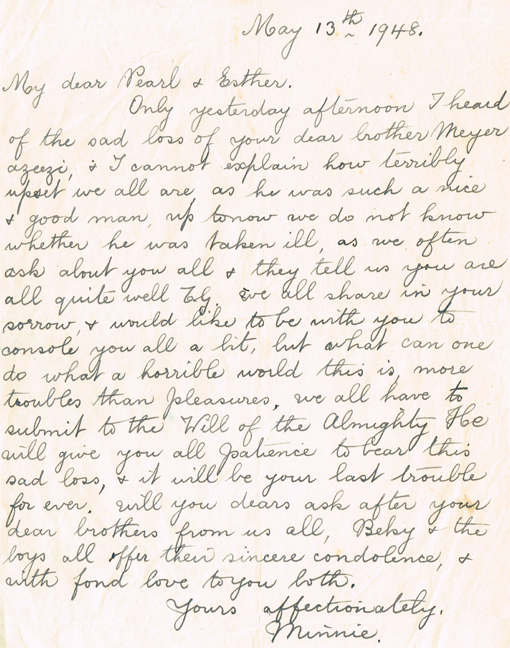 May 13th 1948.
My dear Pearl & Esther.
Only yesterday afternoon I heard
of the sad loss of your dear brother Meyer
azeezi, & I cannot explain how terribly
upset we all are as he was such a nice
& good man, up tonow we do not know
whether he was taken ill, as we often
ask about you all & they tell us you are
all quite well T.G. we all share in your
sorrow, & would like to be with you to
console you all a bit, but what can one
do what a horrible world this is, more
troubles than pleasures, we all have to
submit to the Will of the Almighty He
will give you all patience to bear this
sad loss, & it will be your last trouble
for ever. will you dears ask after your
dear brothers from us all, Beky & the
boys all offer their sincere condolence, &
with fond love to you both.
Yours affectionately.
Minnie.